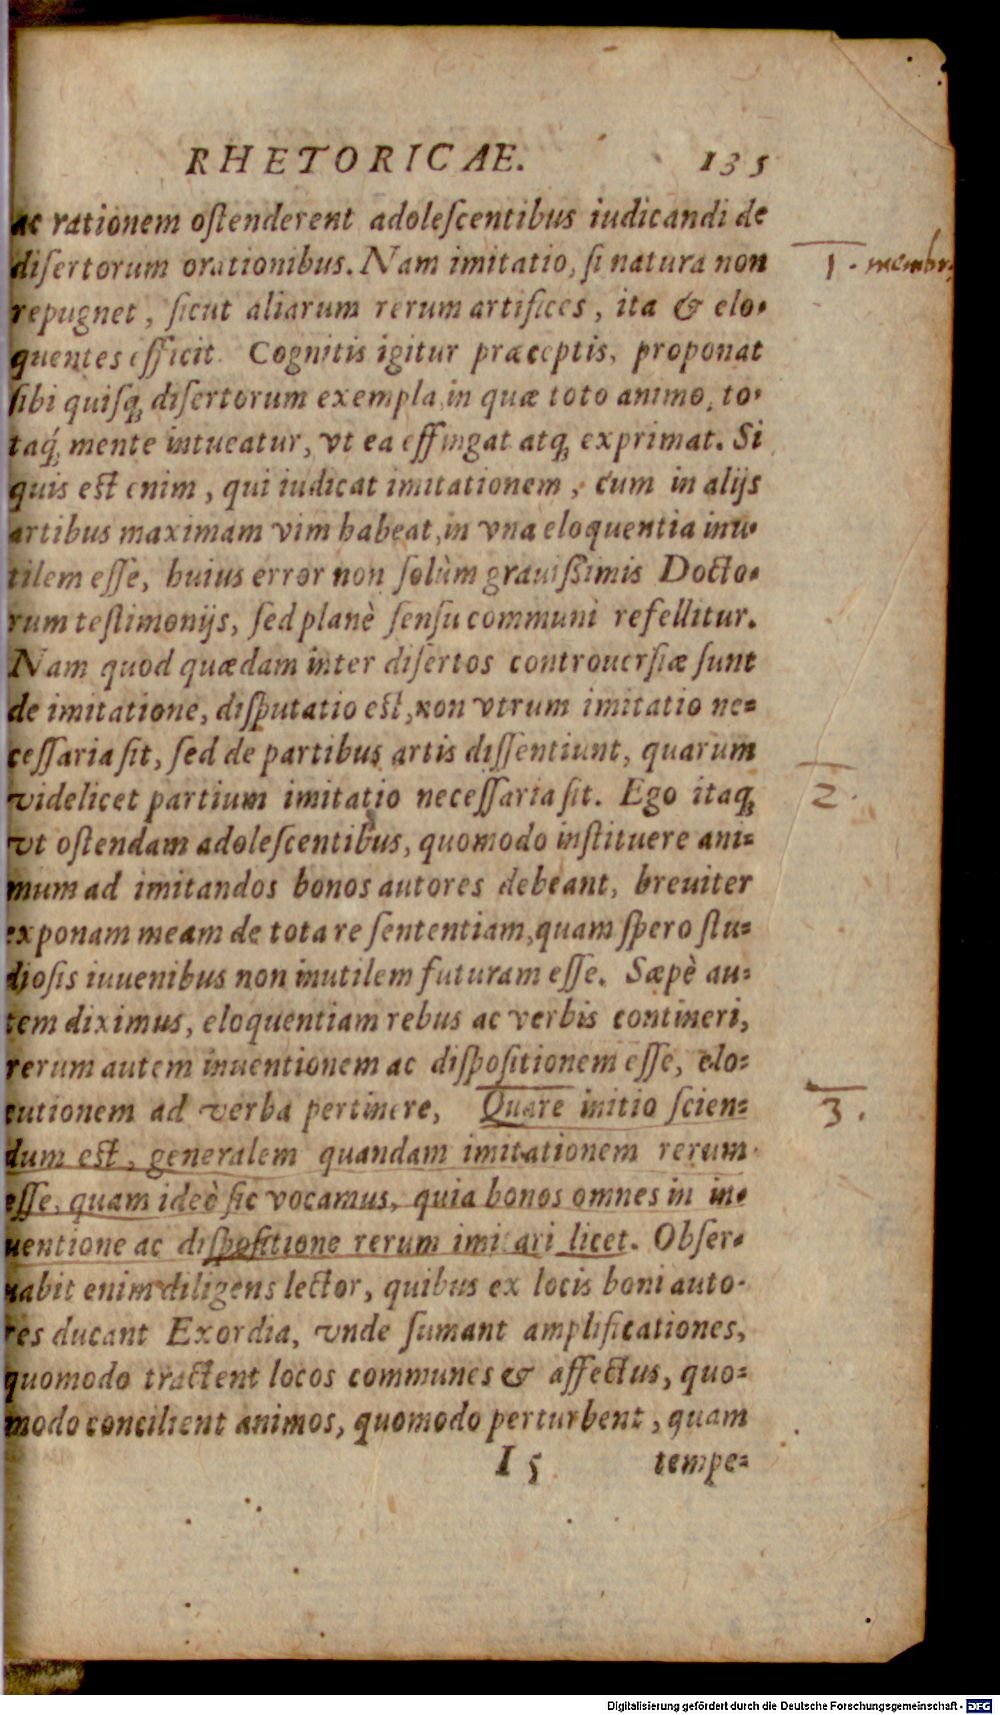 RHETORICAE. 135
ac rationem oſtenderent adoleſcentibus iudicandi de
diſertorum orationibus. Nam imitatio, ſi natura non
1. membr.
repugnet, ſicut aliarum rerum artifices, ita & elo-
quentes efficit. Cognitis igitur præceptis, proponat
ſibi quiſq; diſertorum exempla, in quæ toto animo, to-
taq́; mente intueatur, vt ea effingat atq; exprimat. Si
quis eſt enim, qui iudicat imitationem, cum in alijs
artibus maximam vim habeat, in vna eloquentia inu-
tilem eſſe, huius error non ſolùm grauiſſimis Docto-
rum teſtimonijs, ſed planè ſenſu communi refellitur.
Nam quod quædam inter diſertos controuerſiæ ſunt
de imitatione, diſputatio eſt, non vtrum imitatio ne-
ceſſaria ſit, ſed de partibus artis diſſentiunt, quarum
videlicet partium imitatio neceſſaria ſit. Ego itaq;
2.
vt oſtendam adoleſcentibus, quomodo inſtituere ani-
mum ad imitandos bonos autores debeant, breuiter
exponam meam de tota re ſententiam, quam ſpero ſtu-
dioſis iuuenibus non inutilem futuram eſſe. Sæpè au-
tem diximus, eloquentiam rebus ac verbis contineri,
rerum autem inuentionem ac diſpoſitionem eſſe, elo-
cutionem ad verba pertinere, Quare initio ſcien-
3.
dum eſt, generalem quandam imitationem rerum
eſſe, quam ideò ſic vocamus, quia bonos omnes in in-
uentione ac diſpoſitione rerum imitari licet. Obſer-
uabit enim diligens lector, quibus ex locis boni auto-
res ducant Exordia, vnde ſumant amplificationes,
quomodo tractent locos communes & affectus, quo-
modo concilient animos, quomodo perturbent, quam
I 5 tempe-
Digitalisierung gefördert durch die Deutsche Forschungsgemeinschaft - DFG